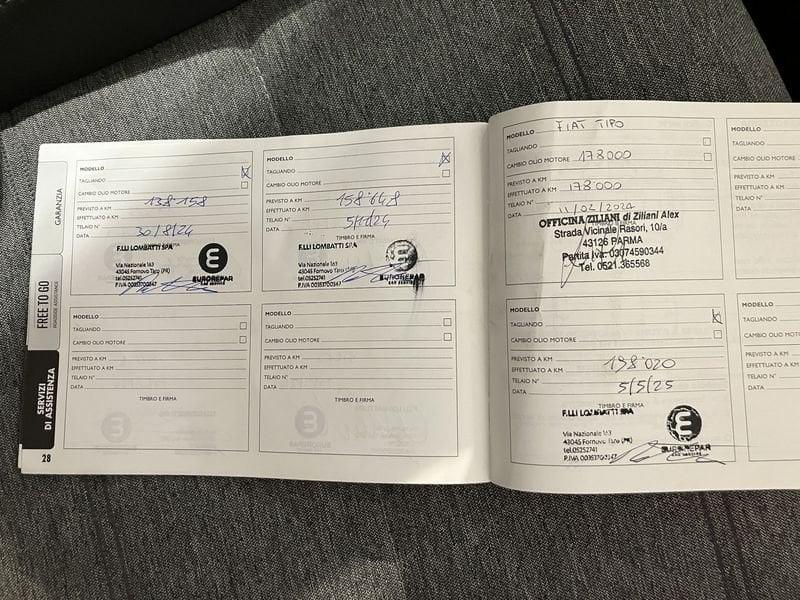 GARANZIA
FREE TO GO
SERVIZI
DI ASSISTENZA
28
MODELLO
TAGLIANDO
CAMBIO OLIO MOTORE
PREVISTO A KM
EFFETTUATO A KM 138·158
TELAIO N°
DATA 30/8/24
F.LLI LOMBATTI SPA
Via Nazionale 163
43045 Fornovo Taro (PR)
tel.05252741
P.IVA 00353700347
EUROREPAR
CAR SERVICE
MODELLO
TAGLIANDO
CAMBIO OLIO MOTORE
PREVISTO A KM
EFFETTUATO A KM 158·648
TELAIO N°
DATA
TIMBRO E FIRMA
F.LLI LOMBATTI SPA
Via Nazionale 163
43045 Fornovo Taro (PR)
tel.05252741
P.IVA 00353700347
EUROREPAR
CAR SERVICE
MODELLO
TAGLIANDO
CAMBIO OLIO MOTORE
PREVISTO A KM
EFFETTUATO A KM
TELAIO N°
DATA
TIMBRO E FIRMA
MODELLO
TAGLIANDO
CAMBIO OLIO MOTORE
PREVISTO A KM
EFFETTUATO A KM
TELAIO N°
DATA
TIMBRO E FIRMA
MODELLO FIAT TIPO
TAGLIANDO
CAMBIO OLIO MOTORE 178000
PREVISTO A KM
EFFETTUATO A KM 178000
TELAIO N°
DATA 11/02/2024
OFFICINA ZILIANI di Ziliani Alex
Strada Vicinale Rasori, 10/a
43126 PARMA
Partita Iva: 03074590344
Tel. 0521.365568
MODELLO
TAGLIANDO
CAMBIO OLIO MOTORE
PREVISTO A KM
EFFETTUATO A KM 198·020
TELAIO N°
DATA 5/5/25
TIMBRO E FIRMA
F.LLI LOMBATTI SPA
Via Nazionale 163
43045 Fornovo Taro (PR)
tel.05252741
P.IVA 00353700347
EUROREPAR
CAR SERVICE
MODELLO
TAGLIANDO
CAMBIO
PREVISTO A KM
EFFETTUATO
TELAIO N°
DATA
MODELLO
TAGLIANDO
CAMBIO
PREVISTO A
EFFETTUATO
TELAIO N°
DATA